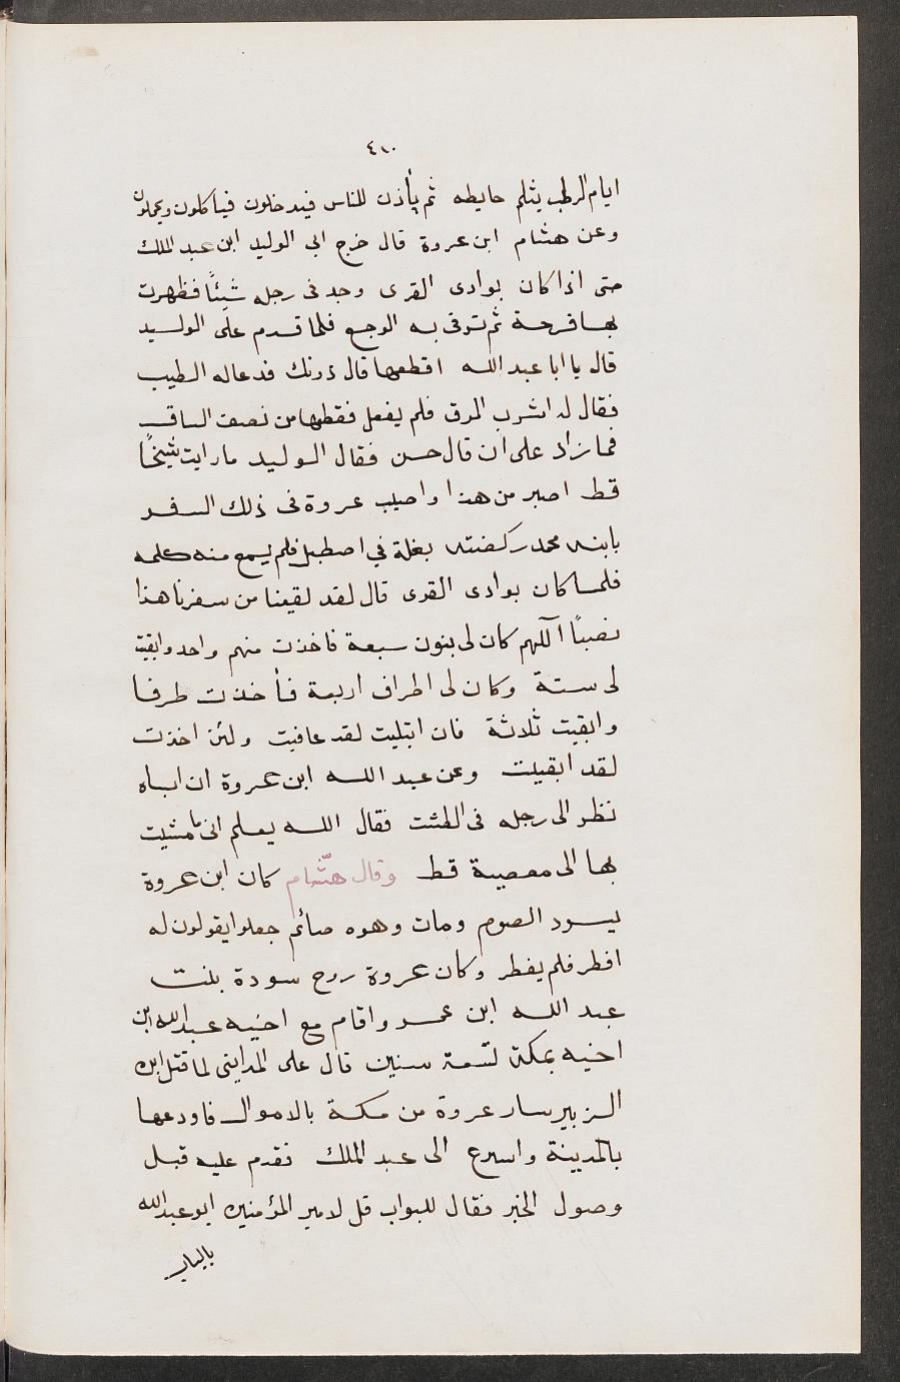 ٤١٠
ايام الرطب يثلم حايطه ثم يأذن للناس فيدخلون فياكلون ويحملون
وعن هشام ابن عروة قال خرج ابي الوليد ابن عبد الملك
حتى اذا كان بوادى القرى وجد فى رجله شيئًا فظهرت
بها قرحة ثم توقى به الوجع فلما قدم على الوليد
قال يا ابا عبد الله اقطعها قال دونك فدعاله الطيب
فقال له اشرب المرق فلم يفعل فقطعها من نصف الساق
فما زاد على أن قال حسن فقال الوليد ما رايت شيخًا
قط اصبر من هذا واصيب عروة فى ذلك السفر
بابنه محمد ركضته بغلة في اصطبل فلم يسمع منه كلمه
فلما كان بوادى القرى قال لقد لقينا من سفرنا هذا
نصبًا اللهم كان لى بنون سبعة فاخذت منهم واحد وابقيت
لى ستة وكان لى اطراف اربعة فأخذت طرفا
وابقيت ثلاثة فان ابتليت لقد عافيت ولئن اخذت
لقد ابقيت وعن عبد الله ابن عروة ان اباه
نظر الى رجله فى الطشت فقال الله يعلم انى ما مشيت
بها الى معصية قط وقال هشام كان ابن عروة
يسرد الصوم ومات وهوه صائم جعلوا يقولون له
افطر فلم يفطر وكان عروة زوج سودة بنت
عبد الله ابن عمر واقام مع اخيه عبد الله ابن
اخيه بمكة تسعة سنين قال على المداينى لما قتل ابن
الزبير سار عروة من مكة بالاموال فاودعها
بالمدينة واسرع الى عبد الملك فقدم عليه قبل
وصول الخبر فقال للبواب قل لامير المؤمنين ابو عبد الله
بالباب